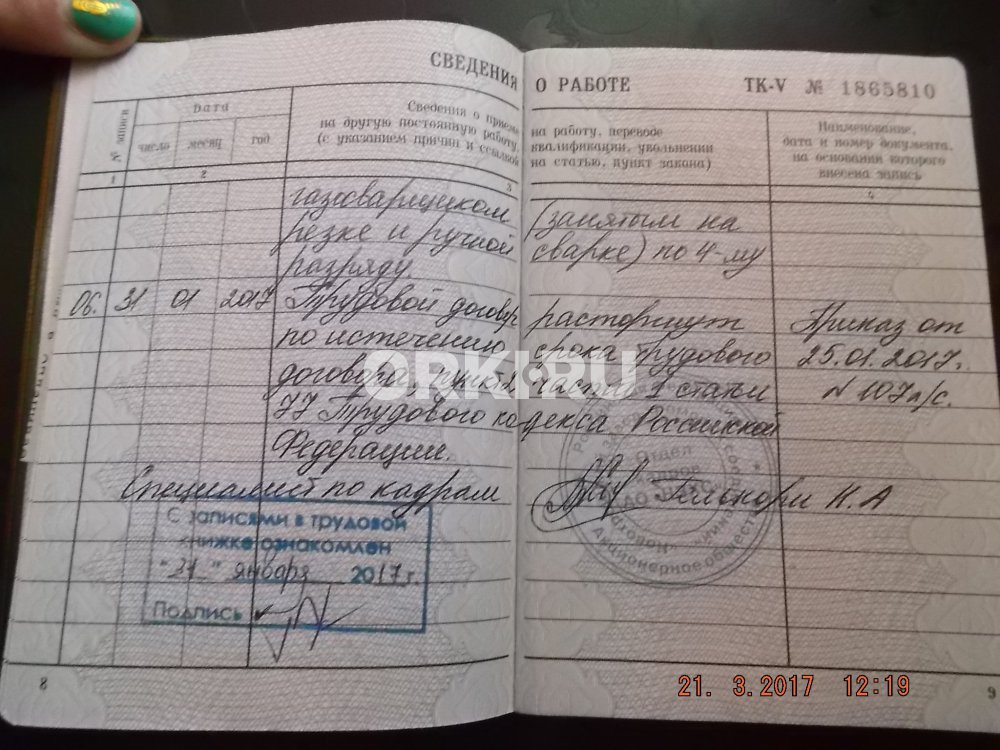 СВЕДЕНИЯ О РАБОТЕ ТК-V № 1865810
№ записи
Дата
число месяц год
Сведения о приеме на работу, переводе
на другую постоянную работу, квалификации, увольнении
(с указанием причин и ссылкой на статью, пункт закона)
Наименование,
дата и номер документа,
на основании которого
внесена запись
1 2 3 4
газосварщиком (занятым на
резке и ручной сварке) по 4-му
разряду.
06. 31 01 2017 Трудовой договор расторгнут Приказ от
по истечению срока трудового 25.01.2017г.
договора, пункт 2 части 1 статьи № 107л/с.
77 Трудового кодекса Российской
Федерации.
Специалист по кадрам Н.А
Отдел
кадров
Акционерное общество
С записями в трудовой
книжке ознакомлен
"31" января 2017г.
Подпись
ORKI.RU
8
21. 3.2017 12:19
9